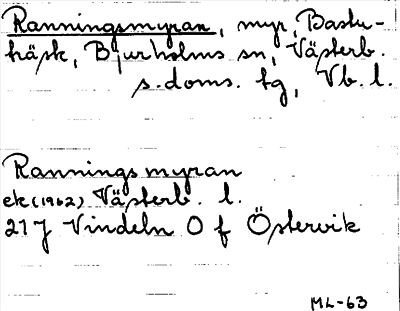 Ranningsmyran, myr, Bastu-
träsk, Bjurholms sn, Västerb.
s. doms. tg, Vb. l.
Ranningsmyran
ek (1962) Västerb. l.
21 J Vindeln 0 f Östervik
ML-63